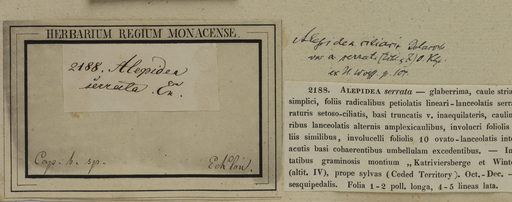 HERBARIUM REGIUM MONACENSE.
2188. Alepidea
serrata. En.
Cap. b. sp.
Ecklon.
Alepidea ciliaris
var. α serrata
ex H. Wolff p. 101.
2188. ALEPIDEA serrata — glaberrima, caule stria
simplici, foliis radicalibus petiolatis lineari-lanceolatis serra
raturis setoso-ciliatis, basi truncatis v. inaequilateris, caulin
ribus lanceolatis alternis amplexicaulibus, involucri foliolis
liis similibus, involucelli foliolis 10 ovato-lanceolatis inte
acutis basi cohaerentibus umbellulam excedentibus. — In
tatibus graminosis montium „Katriviersberge et Winte
(altit. IV), prope sylvas (Ceded Territory). Oct.-Dec. —
sesquipedalis. Folia 1-2 poll. longa, 4-5 lineas lata.